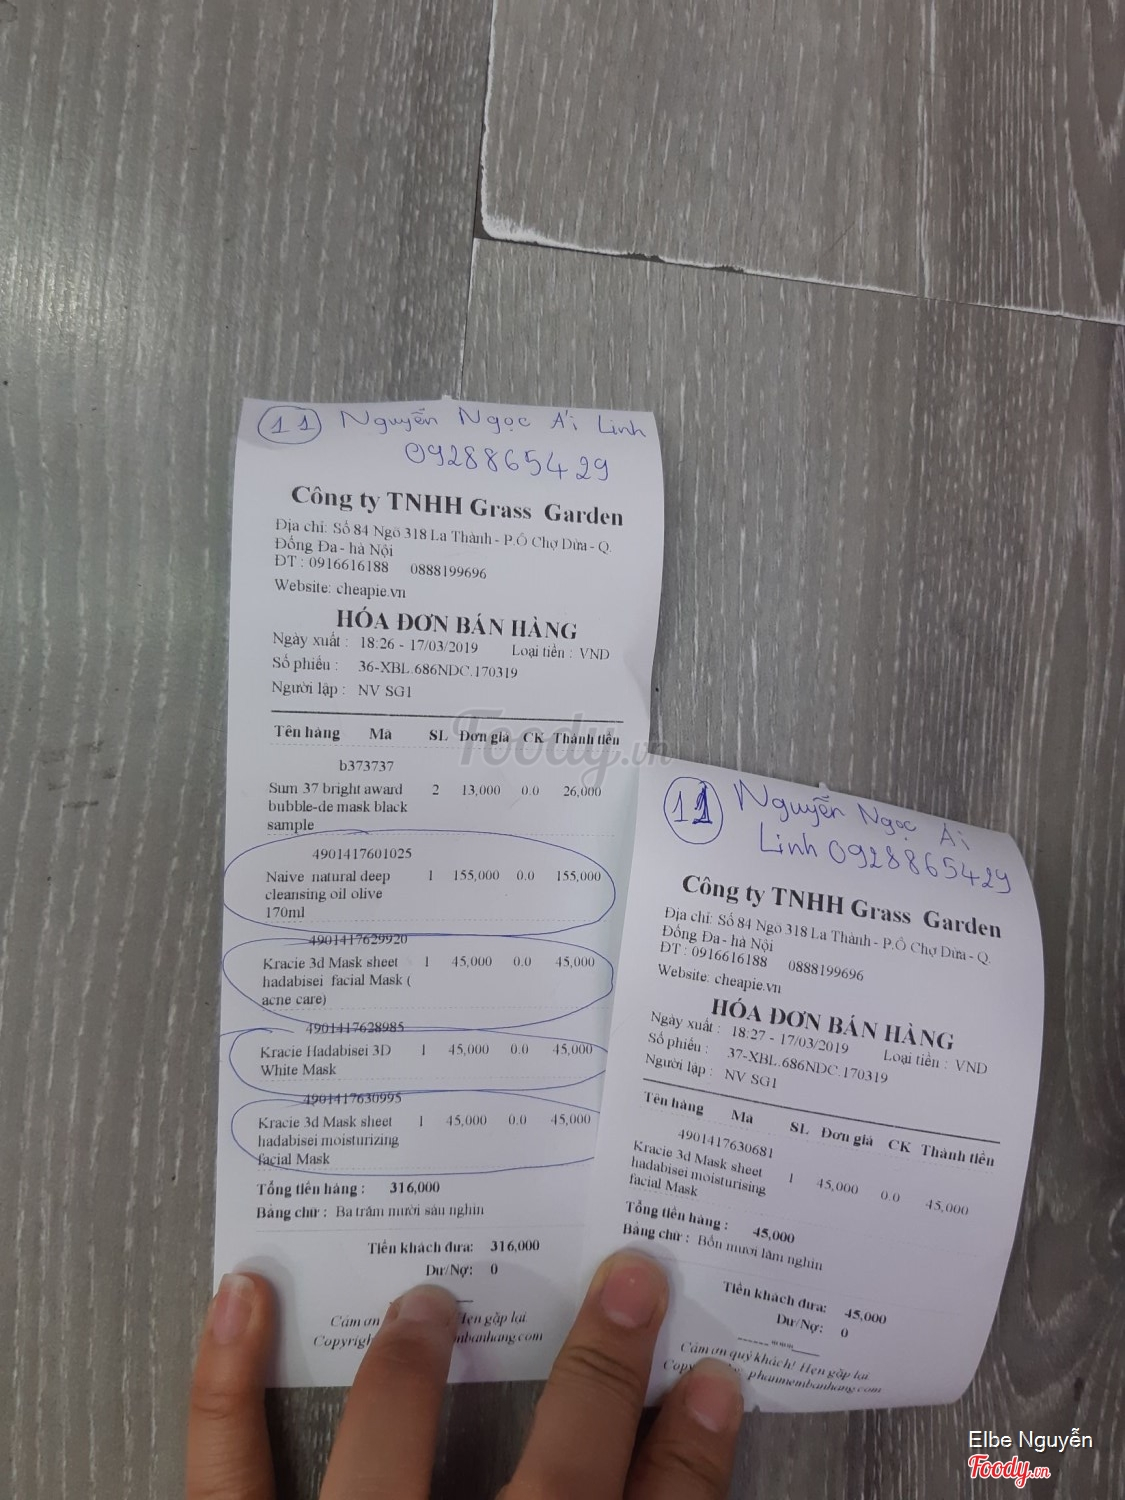 11 Nguyễn Ngọc Ái Linh
0928865429
Công ty TNHH Grass Garden
Địa chỉ: Số 84 Ngõ 318 La Thành - P.Ô Chợ Dừa - Q.
Đống Đa - hà Nội
ĐT : 0916616188 0888199696
Website: cheapie.vn
HÓA ĐƠN BÁN HÀNG
Ngày xuất : 18:26 - 17/03/2019 Loại tiền : VND
Số phiếu : 36-XBL.686NDC.170319
Người lập : NV SG1
Tên hàng Mã SL Đơn giá CK Thành tiền
b373737
Sum 37 bright award 2 13,000 0.0 26,000
bubble-de mask black
sample
4901417601025
Naive natural deep 1 155,000 0.0 155,000
cleansing oil olive
170ml
4901417629920
Kracie 3d Mask sheet 1 45,000 0.0 45,000
hadabisei facial Mask (
acne care)
4901417628985
Kracie Hadabisei 3D 1 45,000 0.0 45,000
White Mask
4901417630995
Kracie 3d Mask sheet 1 45,000 0.0 45,000
hadabisei moisturizing
facial Mask
Tổng tiền hàng : 316,000
Bằng chữ : Ba trăm mười sáu nghìn
Tiền khách đưa: 316,000
Dư/Nợ: 0
Cám ơn Hẹn gặp lại
11 Nguyễn Ngọc Ái
Linh 0928865429
Công ty TNHH Grass Garden
Địa chỉ: Số 84 Ngõ 318 La Thành - P.Ô Chợ Dừa - Q.
Đống Đa - hà Nội
ĐT : 0916616188 0888199696
Website: cheapie.vn
HÓA ĐƠN BÁN HÀNG
Ngày xuất : 18:27 - 17/03/2019 Loại tiền : VND
Số phiếu : 37-XBL.686NDC.170319
Người lập : NV SG1
Tên hàng Mã SL Đơn giá CK Thành tiền
4901417630681
Kracie 3d Mask sheet 1 45,000 0.0 45,000
hadabisei moisturising
facial Mask
Tổng tiền hàng : 45,000
Bằng chữ : Bốn mươi lăm nghìn
Tiền khách đưa: 45,000
Dư/Nợ: 0
Cám ơn quý khách! Hẹn gặp lại
phanmembanhang.com
Foody.vn
Elbe Nguyễn
Foody.vn